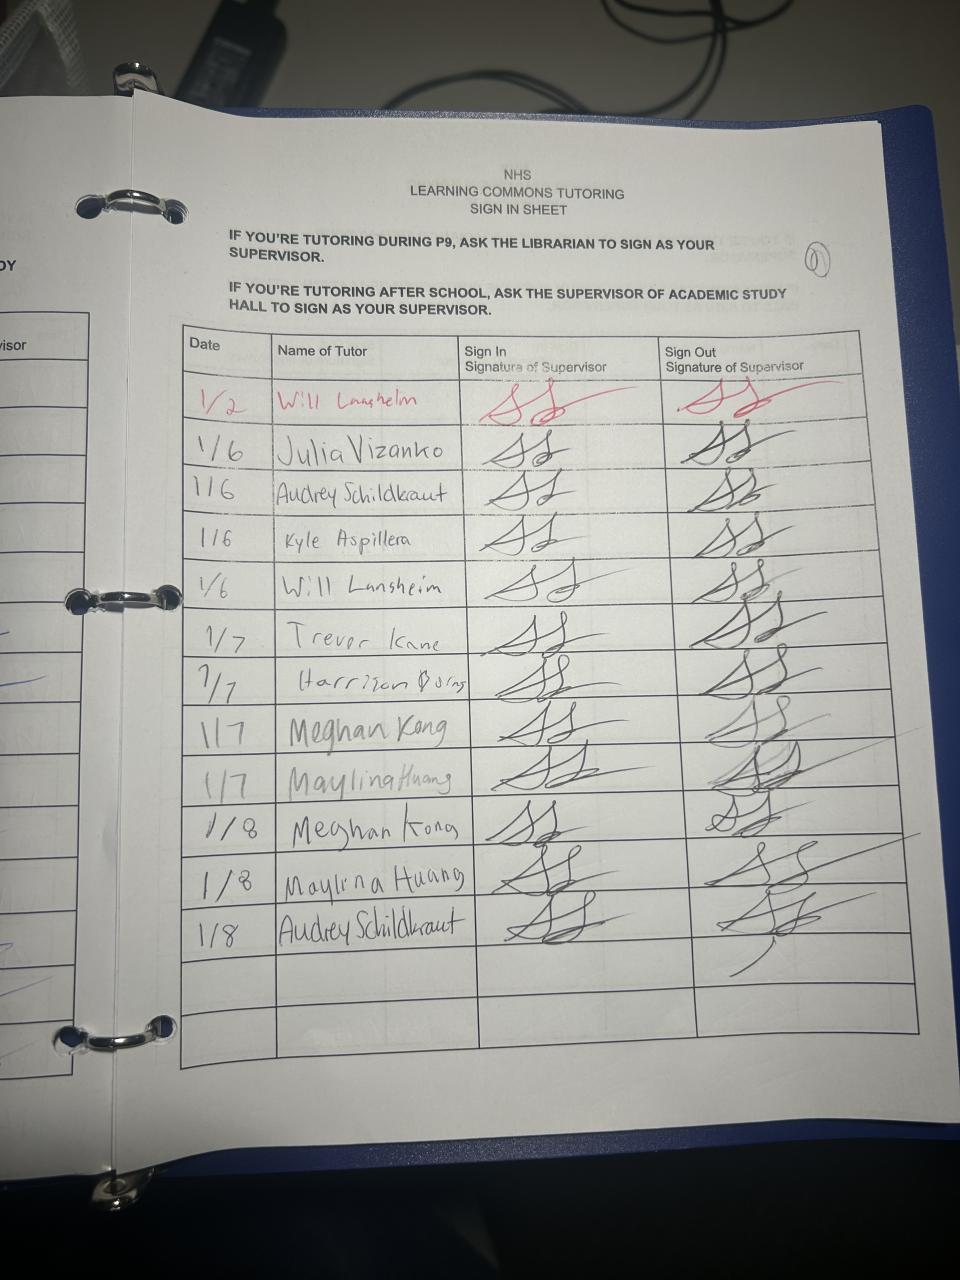 NHS
LEARNING COMMONS TUTORING
SIGN IN SHEET
IF YOU'RE TUTORING DURING P9, ASK THE LIBRARIAN TO SIGN AS YOUR
SUPERVISOR.
IF YOU'RE TUTORING AFTER SCHOOL, ASK THE SUPERVISOR OF ACADEMIC STUDY
HALL TO SIGN AS YOUR SUPERVISOR.
DY
visor
Date Name of Tutor Sign In Signature of Supervisor Sign Out Signature of Supervisor
1/2 Will Lansheim
1/6 Julia Vizanko
1/6 Audrey Schildkraut
1/6 Kyle Aspillera
1/6 Will Lansheim
1/7 Trevor Kane
1/7 Harrison
1/7 Meghan Kong
1/7 Maylina Huang
1/8 Meghan Kong
1/8 Maylina Huang
1/8 Audrey Schildkraut